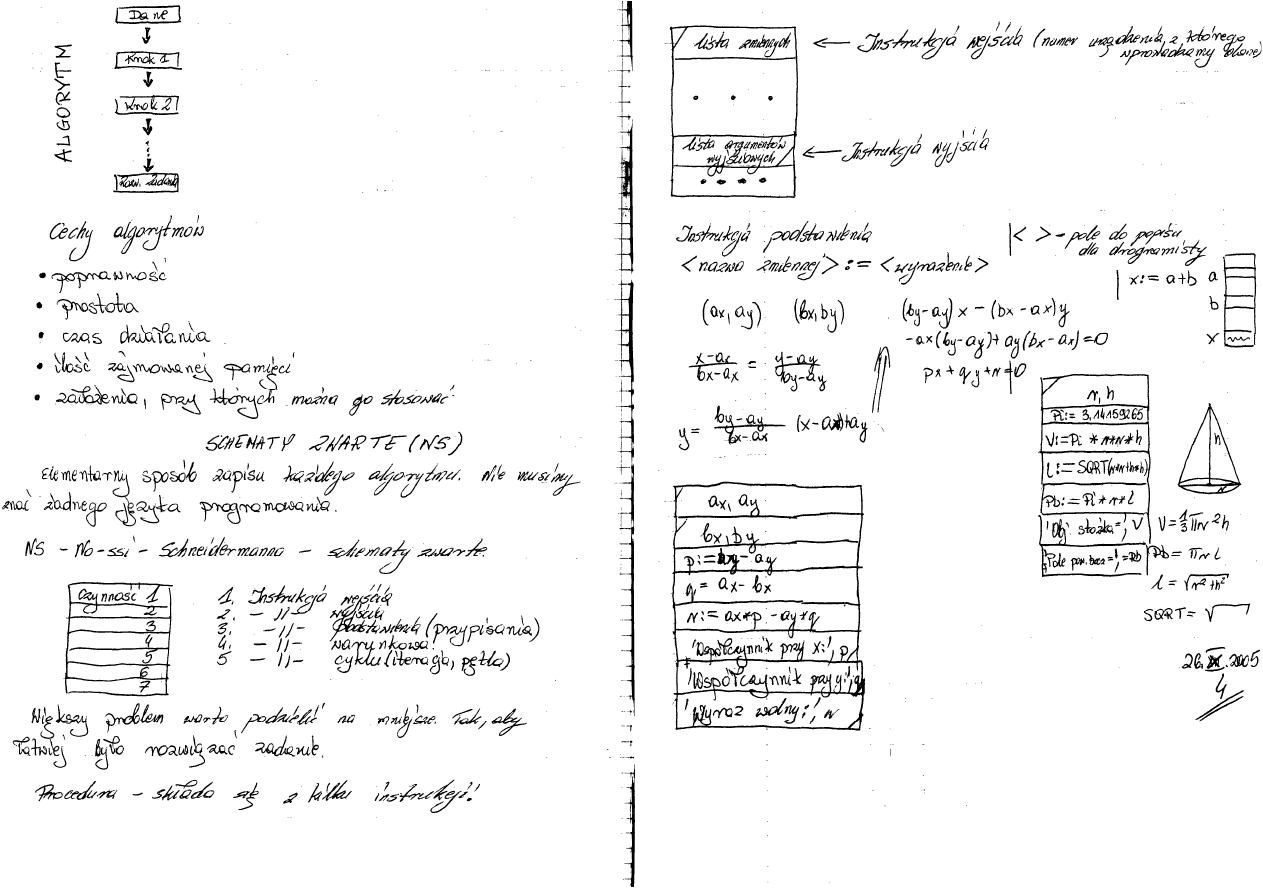 ALGORYTM
Dane
Krok 1
Krok 2
Rozw. zadania
Cechy algorytmów
• poprawność
• prostota
• czas działania
• ilość zajmowanej pamięci
• założenia, przy których można go stosować
SCHEMATY ZWARTE (NS)
Elementarny sposób zapisu każdego algorytmu. Nie musimy
znać żadnego języka programowania.
NS - No-ssi - Schneidermanna - schematy zwarte.
Czynność 1
2
3
4
5
6
7
1. Instrukcja wejścia
2. -//- wyjścia
3. -//- podstawienia (przypisania)
4. -//- warunkowa
5 -//- cyklu (iteracja, pętla)
Większy problem warto podzielić na mniejsze. Tak, aby
łatwiej było rozwiązać zadanie.
Procedura - składa się z kilku instrukcji!
lista zmiennych
← Instrukcja wejścia (numer urządzenia, z którego
wprowadzamy dane)
• • •
lista argumentów
wyjściowych
← Instrukcja wyjścia
• • • •
Instrukcja podstawienia
<nazwa zmiennej> := <wyrażenie>
< > - pole do popisu
dla programisty
x:= a+b
a
b
x
(ax, ay) (bx, by)
(x-ax)/(bx-ax) = (y-ay)/(by-ay)
y = (by-ay)/(bx-ax) (x-ax)+ay
(by-ay)x - (bx-ax)y
-ax(by-ay)+ay(bx-ax)=0
px+qy+r=0
ax, ay
bx, by
p:= by-ay
q= ax-bx
r:= ax*p - ay*q
'Współczynnik przy x:', p
'Współczynnik przy y:', q
'Wyraz wolny:', r
r, h
Pi:= 3,14159265
V:=Pi*r*r*h
l:=SQRT(r*r+h*h)
Pb:=Pi*r*l
'Obj. stożka=', V
'Pole pow. bocz=', =Pb
h
r
V=1/3πr²h
Pb= πrl
l=√r²+h²
SQRT=√
26.IX.2005
4